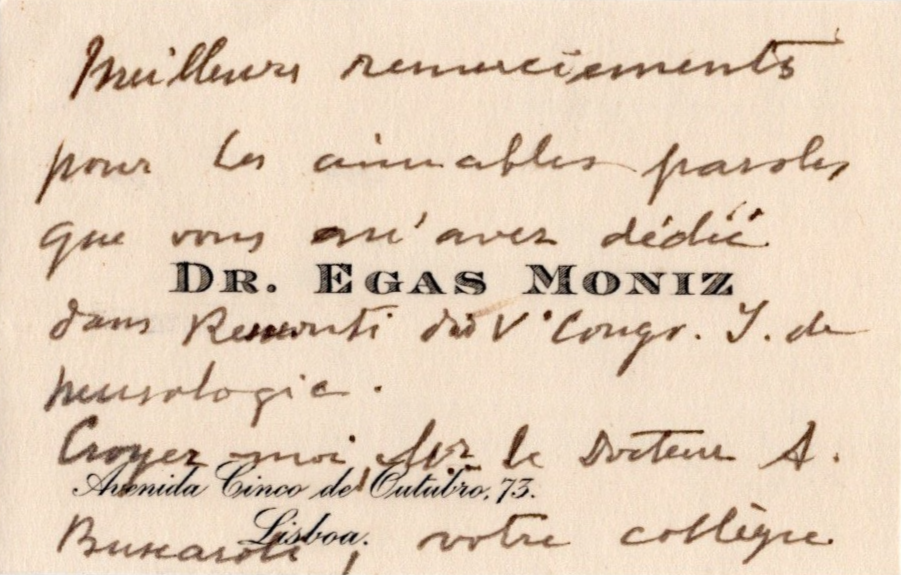 Meilleurs remerciements
pour les aimables paroles
que vous m'avez dédié
DR. EGAS MONIZ
dans du V° Congr. I. de
neurologie.
Croyez moi le Docteur A.
Avenida Cinco de Outubro, 73.
Lisboa.
, votre collègue